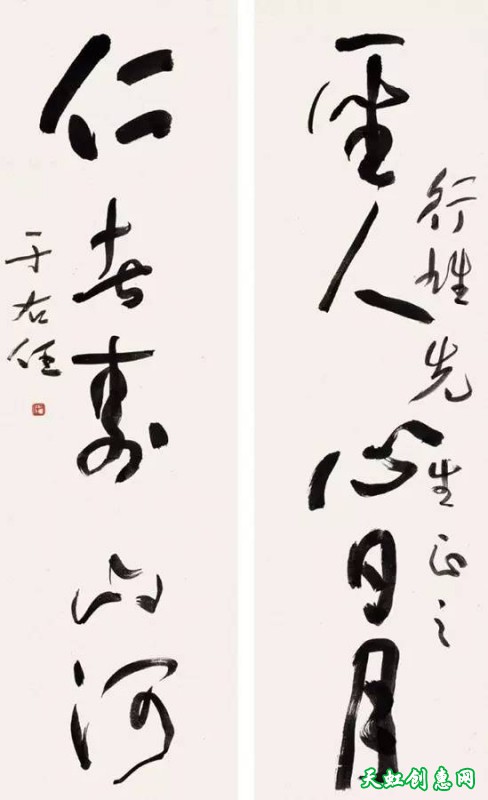 行雄先生正之
聖人心日月
仁者壽山河
于右任
天虹创惠网